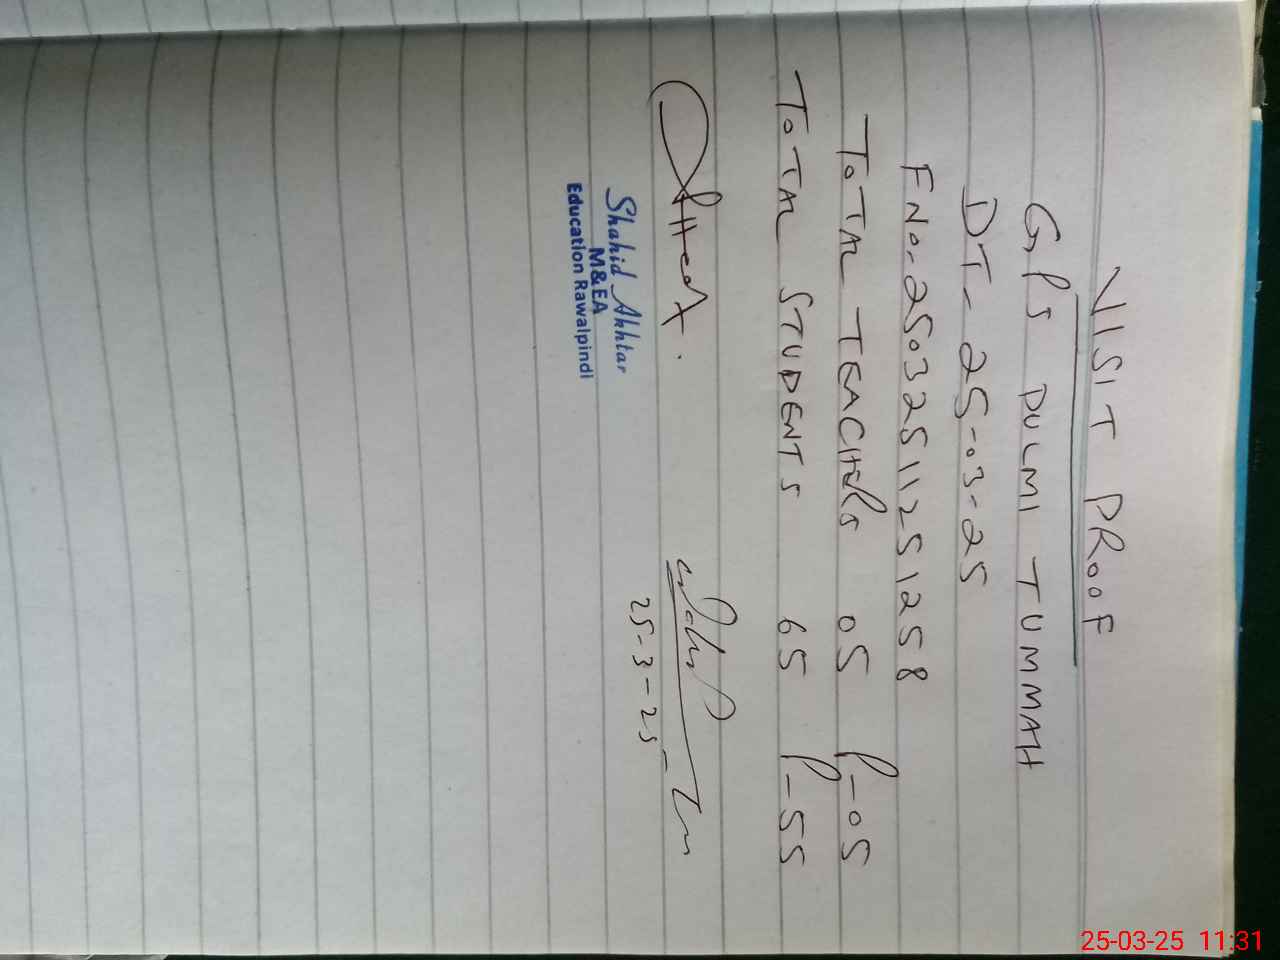 VISIT PROOF
GPS DULMI TUMMAH
DT- 25-03-25
FNo-25032511251258
TOTAL TEACHeRs 05 P-05
TOTAL STUDENTS 65 P-55
25-3-25
Shahid Akhtar
M&EA
Education Rawalpindi
25-03-25 11:31